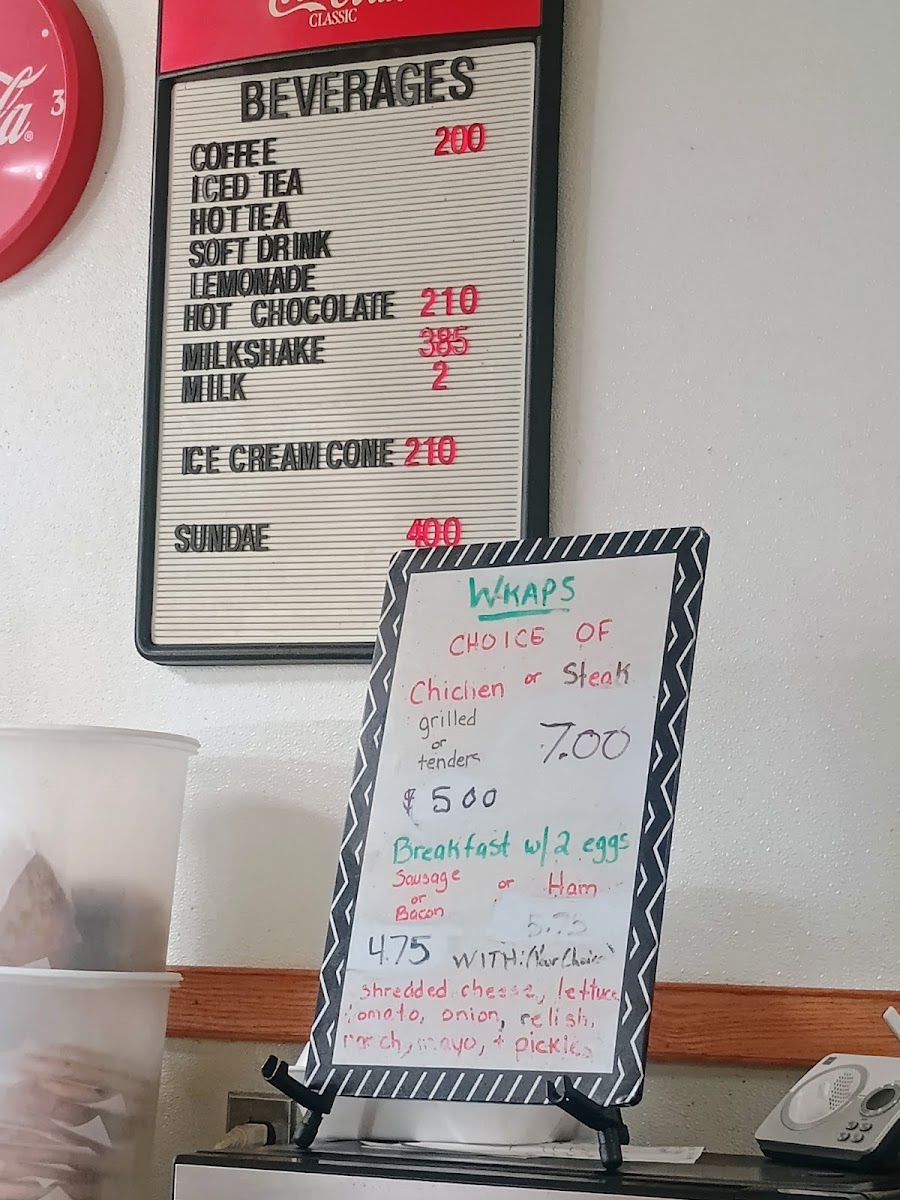 CLASSIC
BEVERAGES
COFFEE 200
ICED TEA
HOT TEA
SOFT DRINK
LEMONADE
HOT CHOCOLATE 210
MILKSHAKE 385
MILK 2
ICE CREAM CONE 210
SUNDAE 400
la® 3
WRAPS
CHOICE OF
Chicken or Steak
grilled
or
tenders
7.00
$ 500
Breakfast w/2 eggs
Sausage or Ham
or
Bacon
5.75
4.75 WITH: (Your Choice)
shredded cheese, lettuce
tomato, onion, relish,
ranch, mayo, + pickles